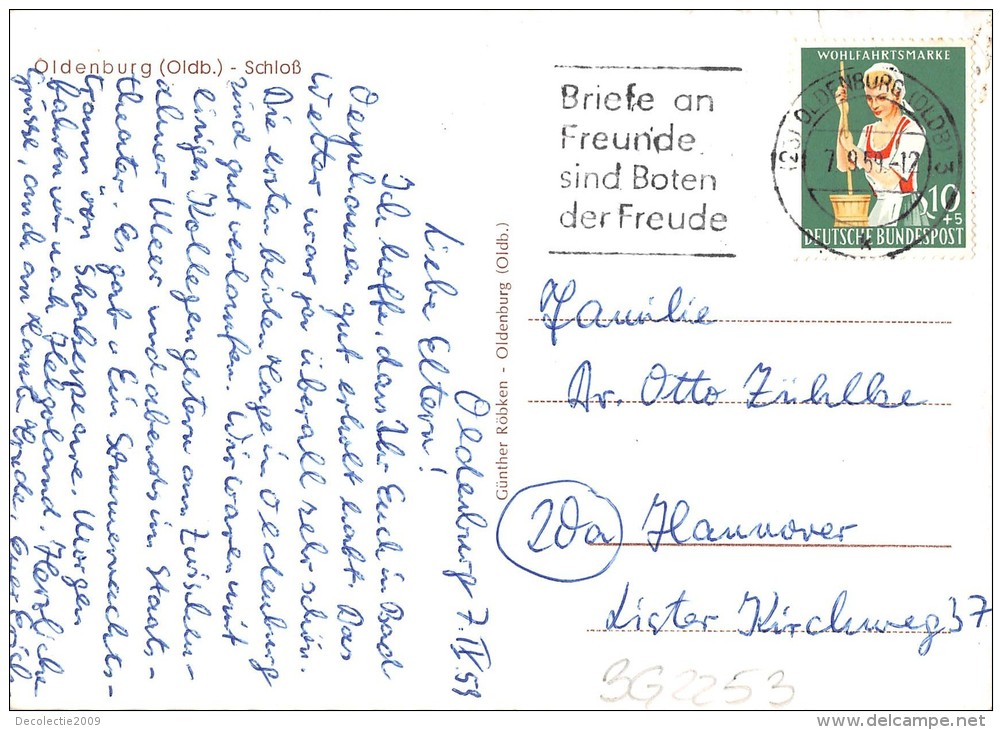 Oldenburg (Oldb.) - Schloß
Oldenburg 7.IX.59
Liebe Eltern!
Ich hoffe, dass Ihr Euch in Bad
Oeynhausen gut erholt habt. Das
Wetter war ja überall sehr schön.
Die ersten beiden Tage in Oldenburg
sind gut verlaufen. Wir waren mit
einigen Kollegen gestern am Zwischen-
ahner Meer und abends im Staats-
theater. Es gab „Ein Sommernachts-
traum" von Shakespeare. Morgen
fahren wir nach Helgoland. Herzliche
Grüsse, auch an Tante Trude, Euer
Günther Röbken - Oldenburg (Oldb.)
Briefe an
Freunde
sind Boten
der Freude
(23) OLDENBURG (OLDB) 3
7.9.59.-12
k
WOHLFAHRTSMARKE
10
+5
DEUTSCHE BUNDESPOST
Familie
Dr. Otto Zühlke
20a Hannover
Lister Kirchweg 37
3G2253
Decolectie2009
www.delcampe.net